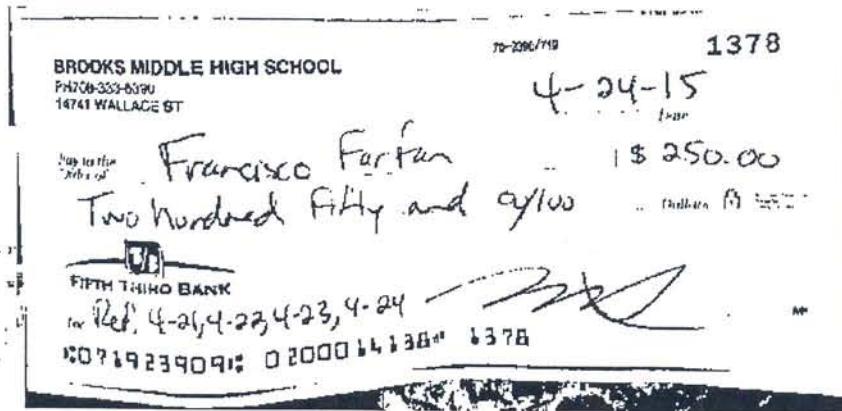 1378
BROOKS MIDDLE HIGH SCHOOL
14741 WALLACE ST
4-24-15
Pay to the
Order of Francisco Farfan $ 250.00
Two hundred Fifty and 0/100 Dollars
FIFTH THIRD BANK
for Ref, 4-21, 4-22, 4-23, 4-24
⑆071923909⑆ 0200014138⑈ 1378